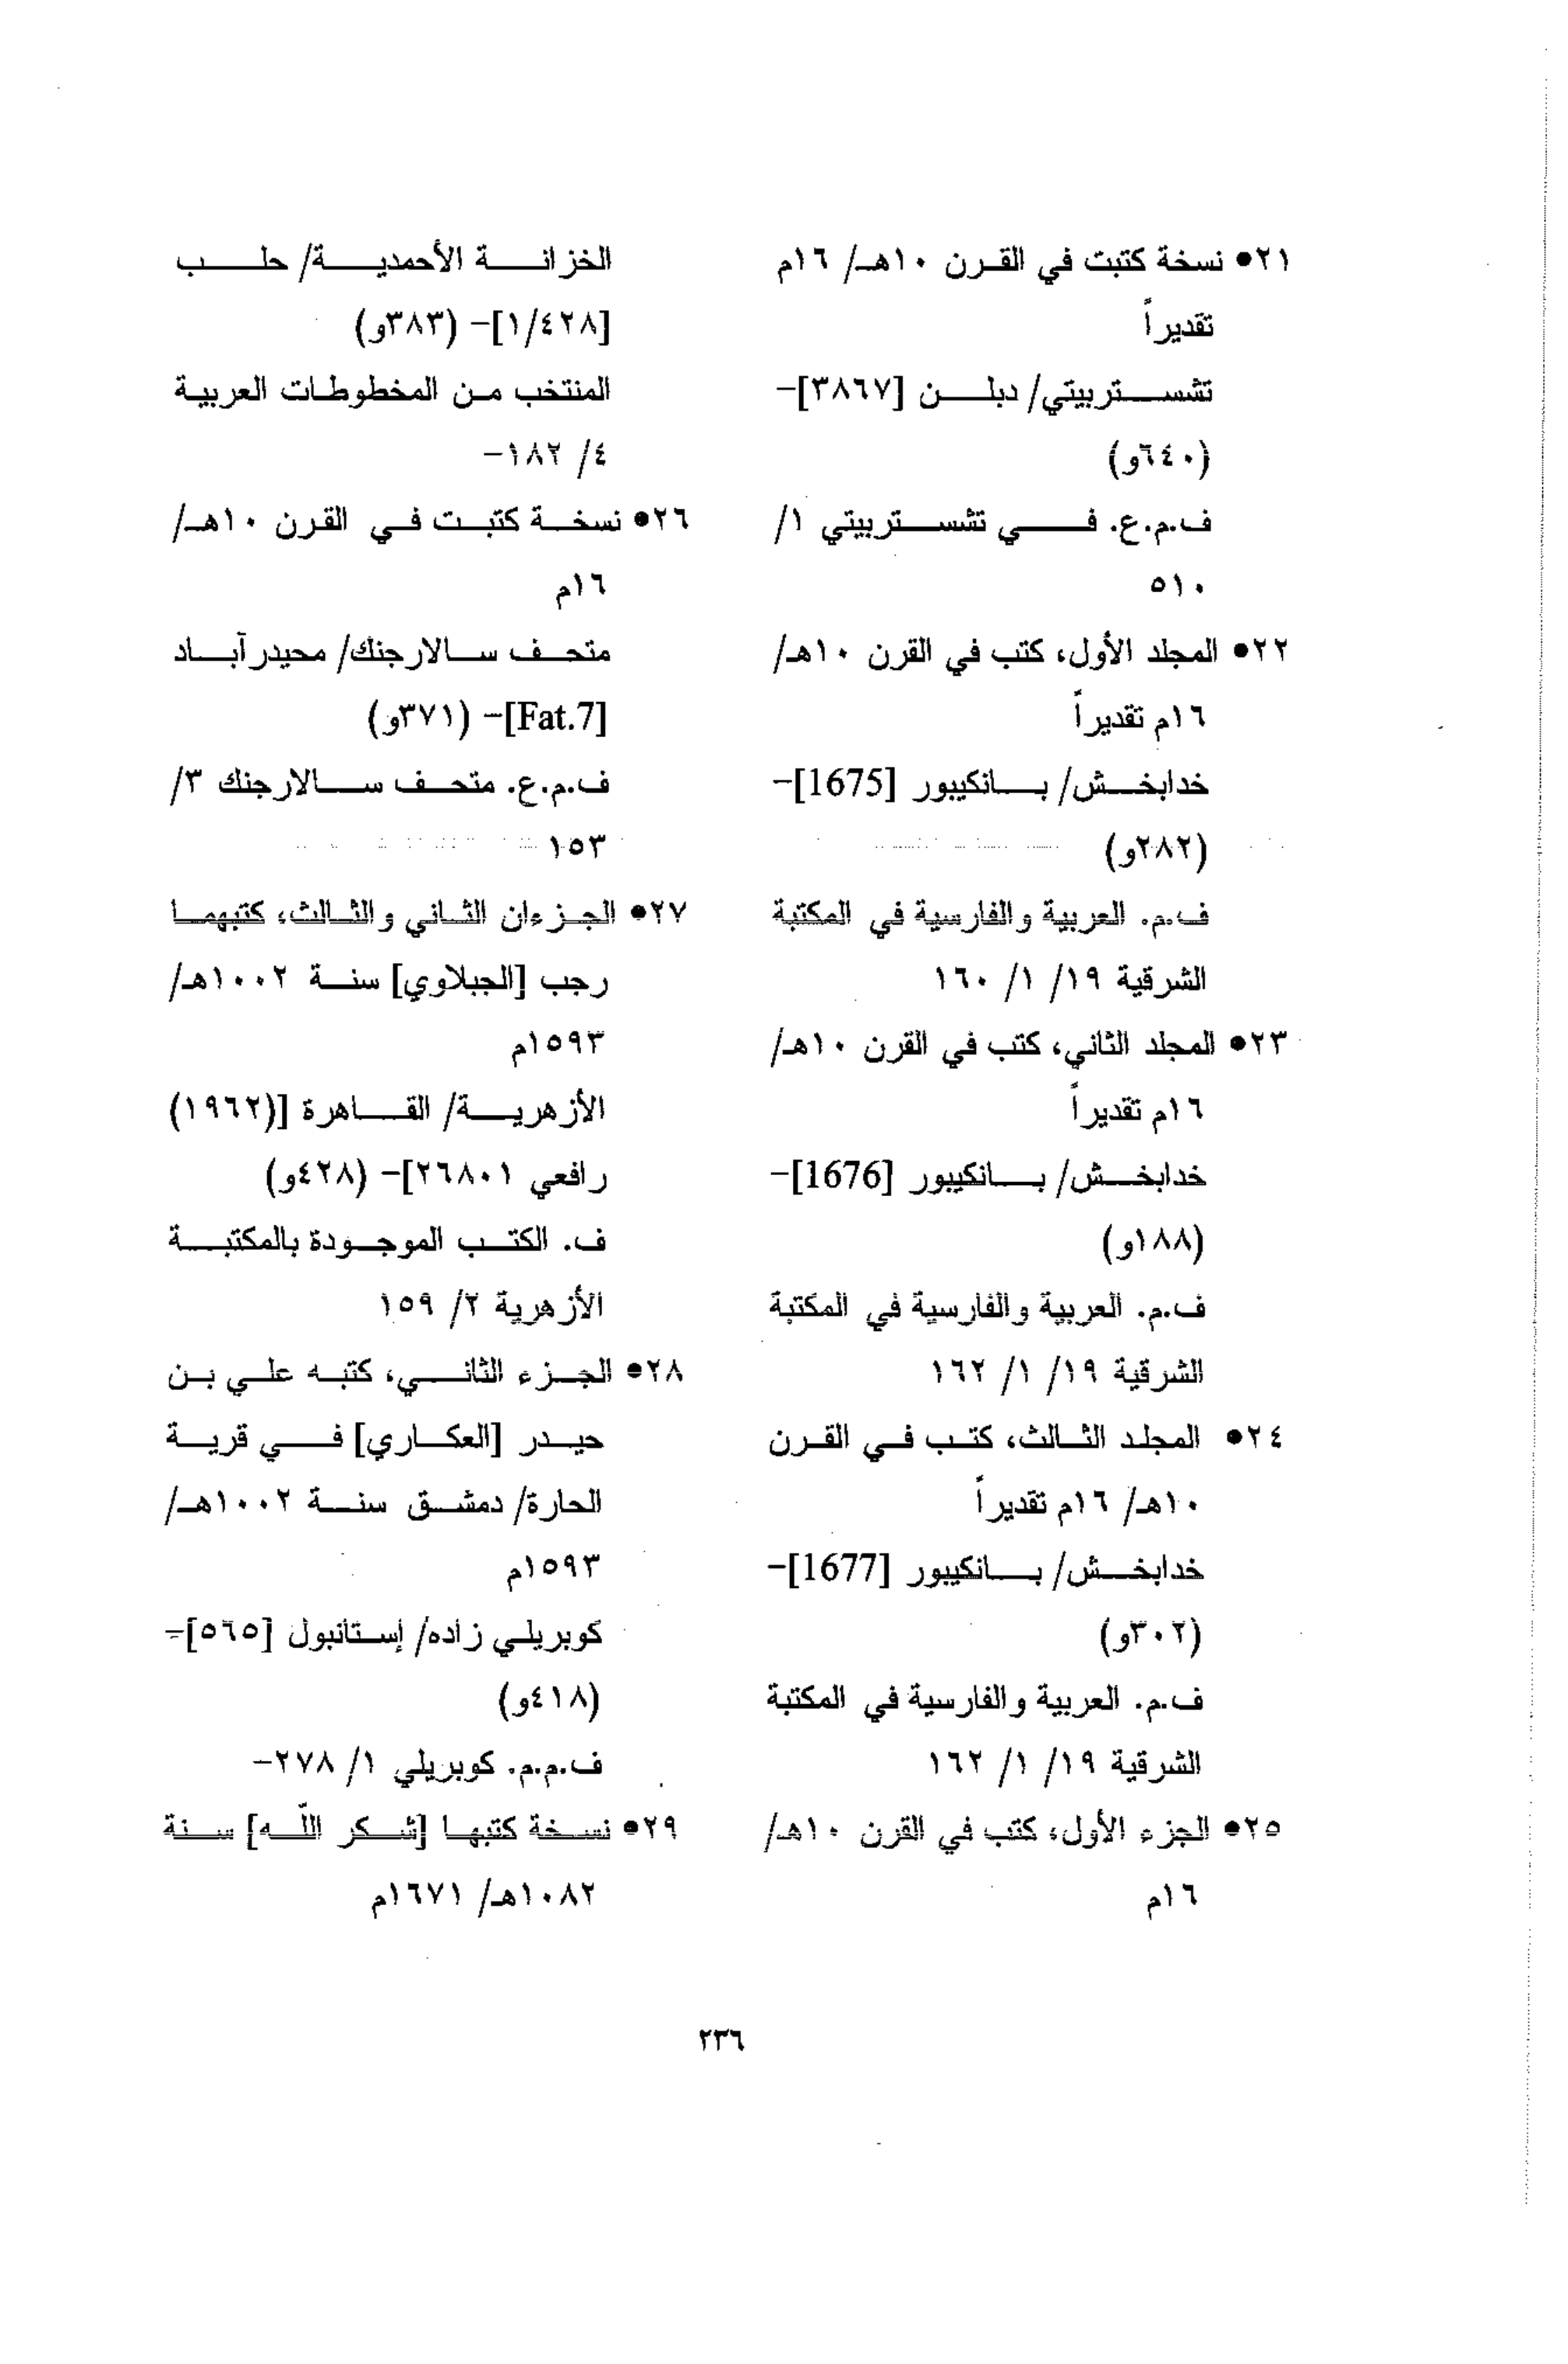 ٢١● نسخة كتبت في القرن ١٠هـ/ ١٦م
تقديراً
تشستربيتي/ دبلن [٣٨٦٧]-
(٦٤٠و)
ف.م.ع. في تشستربيتي ١/
٥١٠
٢٢● المجلد الأول، كتب في القرن ١٠هـ/
١٦م تقديراً
خدابخش/ بانكيبور [1675]-
(٢٨٢و)
ف.م. العربية والفارسية في المكتبة
الشرقية ١٩/ ١/ ١٦٠
٢٣● المجلد الثاني، كتب في القرن ١٠هـ/
١٦م تقديراً
خدابخش/ بانكيبور [1676]-
(١٨٨و)
ف.م. العربية والفارسية في المكتبة
الشرقية ١٩/ ١/ ١٦٢
٢٤● المجلد الثالث، كتب في القرن
١٠هـ/ ١٦م تقديراً
خدابخش/ بانكيبور [1677]-
(٣٠٢و)
ف.م. العربية والفارسية في المكتبة
الشرقية ١٩/ ١/ ١٦٢
٢٥● الجزء الأول، كتب في القرن ١٠هـ/
١٦م
الخزانة الأحمدية/ حلب
[١/٤٢٨]- (٣٨٣و)
المنتخب من المخطوطات العربية
٤/ ١٨٢-
٢٦● نسخة كتبت في القرن ١٠هـ/
١٦م
متحف سالارجنك/ محيدرآباد
[Fat.7]- (٣٧١و)
ف.م.ع. متحف سالارجنك ٣/
١٥٣
٢٧● الجزءان الثاني والثالث، كتبهما
رجب [الجبلاوي] سنة ١٠٠٢هـ/
١٥٩٣م
الأزهرية/ القاهرة [(١٩٦٢)
رافعي ٢٦٨٠١]- (٤٢٨و)
ف. الكتب الموجودة بالمكتبة
الأزهرية ٢/ ١٥٩
٢٨● الجزء الثاني، كتبه علي بن
حيدر [العكاري] في قرية
الحارة/ دمشق سنة ١٠٠٢هـ/
١٥٩٣م
كوبريلي زاده/ إستانبول [٥٦٥]-
(٤١٨و)
ف.م.م. كوبريلي ١/ ٢٧٨-
٢٩● نسخة كتبها [شكر اللّه] سنة
١٠٨٢هـ/ ١٦٧١م
٢٣٦